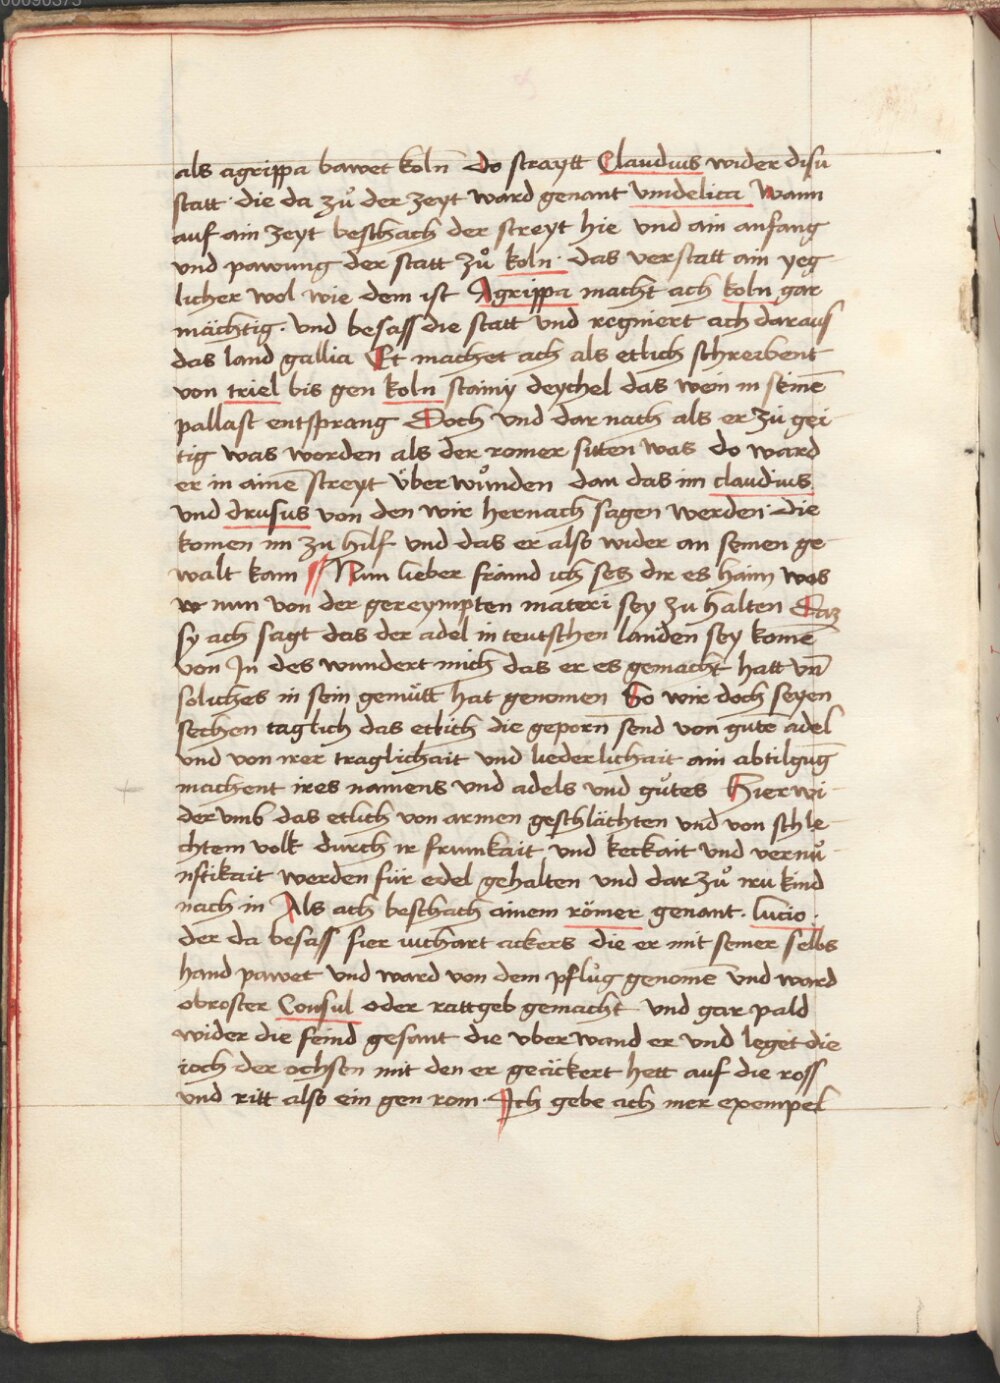 als agrippa bawet koln̄ do straytt Claudius wider disu
statt · die da zů der zeyt ward genant vindelica Wann
auf ain zeyt beschach der streyt hie vnd ain anfang
vnd pawung der statt zů koln · das verstatt ain yeg
licher wol wie dem ist Agrippa macht ach koln gar
mächtig · vnd besass die statt vnd regniert ach daraus
das land gallia Et machet ach als etlich schreibent
von triel bis gen koln stainij deychel das wein in seinē
pallast entsprang Doch vnd dar nach als er zů gei
tig was worden als der romer sitten was do ward
er in ainē streyt überwůnden dan das im claudius
vnd drusus von den wir hernach sagen werden · die
komen im zu hilf vnd das er also wider an seinen ge
walt kam Nun lieber fränd ich setz dir es haim was
nun von der gereympten materi sey zu halten Daz
sy ach sagt das der adel in teutschen landen sey komē
von In des wundert mich das er es gemacht hatt vn̄
soliches in sein gemütt hat genomen So wir doch seyen
sechen taglich das etlich die geporn send von gutē adel
vnd von irer traglichait vnd liederlichait ain abtilgūg
machent ires namens vnd adels vnd gůtes Hierwi
dervmb das etlich von armen geschlächten vnd von schle
chtem volk durch ir frumkait vnd keckait vnd vernů
nftikait werden für edel gehalten vnd dar zů iru kind
nach in Als ach beschach ainem römer genant · lucio ·
der da besass fier iuchart ackers die er mit seiner selbs
hand pawet vnd ward von dem pflůg genomē vnd ward
obroster Consul oder rattgeb gemacht vnd gar pald
wider die feind gesant die vberwand er vnd leget die
ioch der ochsen mit den er geäckert hett auf die ross
vnd ritt also ein gen rom · Ich gebe ach mer exempel